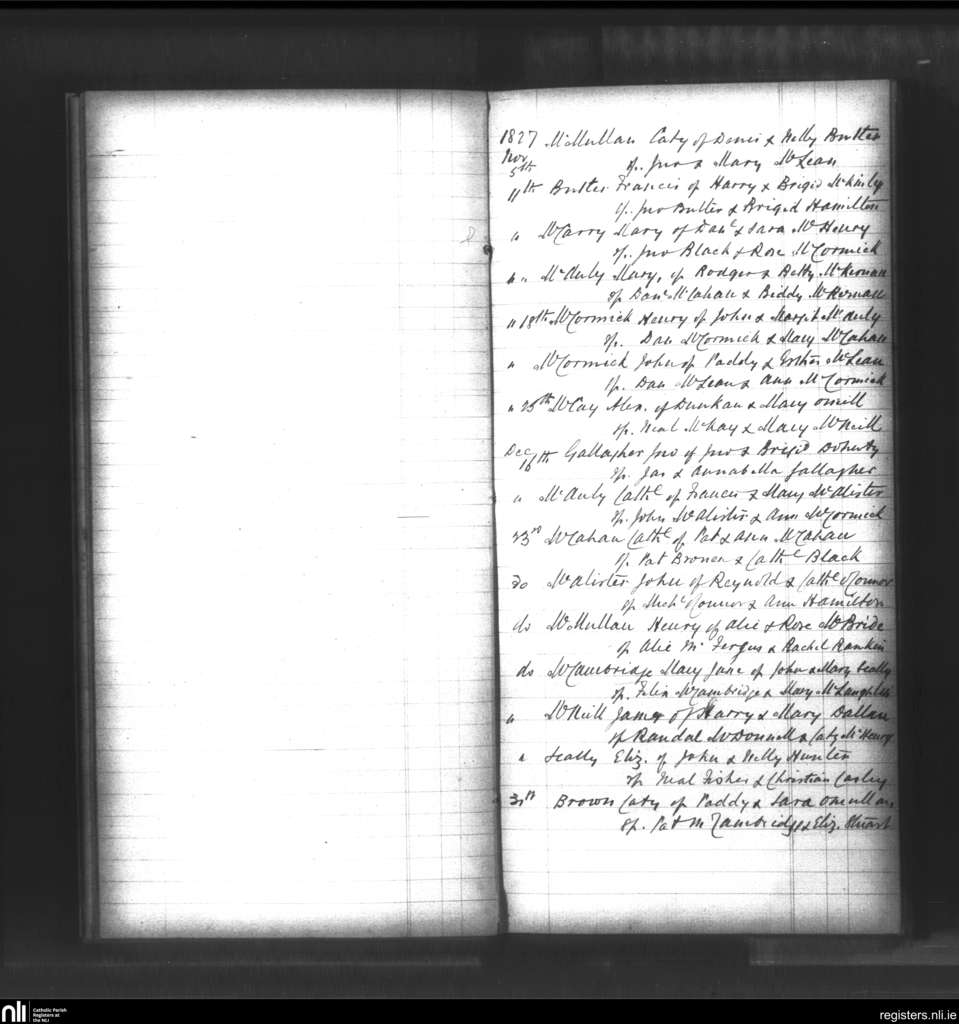 1827 McMullan Caty of Denis & Nelly Butter
Nov 5th sp. Jno & Mary McLean
11th Butter Francis of Harry & Brigid McKinley
sp. Jno Butter & Brigid Hamilton
" McCarry Mary of Danl & Sara McHenry
sp. Jno Black & Rose McCormick
" " McAuly Mary, of Rodger & Betty McKernan
sp Danl McCahan & Biddy McKernan
" 18th McCormick Henry of John & Margt McAuly
sp. Dan McCormick & Mary McCahan
" McCormick John of Paddy & Esther McLean
sp. Dan McLean & Ann McCormick
" 25th McCay Alex. of Dunkan & Mary oneill
sp. Neal McKay & Mary McNeill
Dec 16th Gallagher Jno of Jno & Brigid Doherty
sp. Jas & Annabella Gallagher
" McAuly Cathe of Francis & Mary McAlister
sp. John McAlister & Ann McCormick
23rd McCahan Cathe of Pat & Ann McCahan
sp. Pat Brown & Cathe Black
Do McAlister John of Reynold & Cathe OConnor
sp Michl OConnor & Ann Hamilton
do McMullan Henry of Alie & Rose McBride
sp Alie McFergus & Rachel Rankin
do McCambridge Mary Jane of John & Mary Scally
sp. Felix McCambridge & Mary McLaughlin
" McNeill James of Harry & Mary Dallan
sp Randal McDonnell & Caty McHenry
" Scally Eliz. of John & Nelly Hunter
sp Neal Fisher & Christian Casley
30th Brown Caty of Paddy & Sara Omullan
sp. Pat McCambridge & Eliz. Stuart
nli
Catholic Parish
Registers at
the NLI
registers.nli.ie